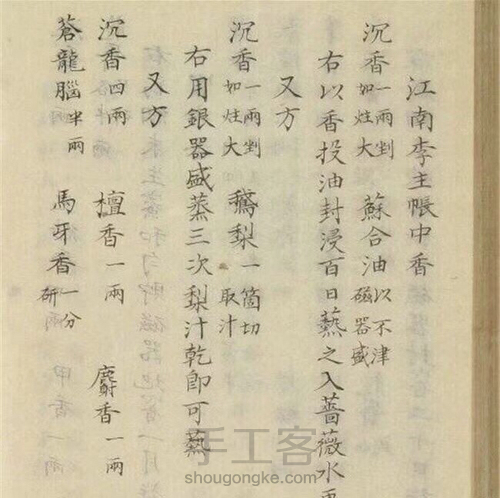 江南李主帳中香
沉香一兩剉如炷大 蘇合油以不津磁器盛
右以香投油封浸百日爇之入薔薇水
又方
沉香一兩剉如炷大 鵝梨一箇切取汁
右用銀器盛蒸三次梨汁乾即可爇
又方
沉香四兩 檀香一兩 麝香一兩
蒼龍腦半兩 馬牙香一分研
手工客
shougongke.com